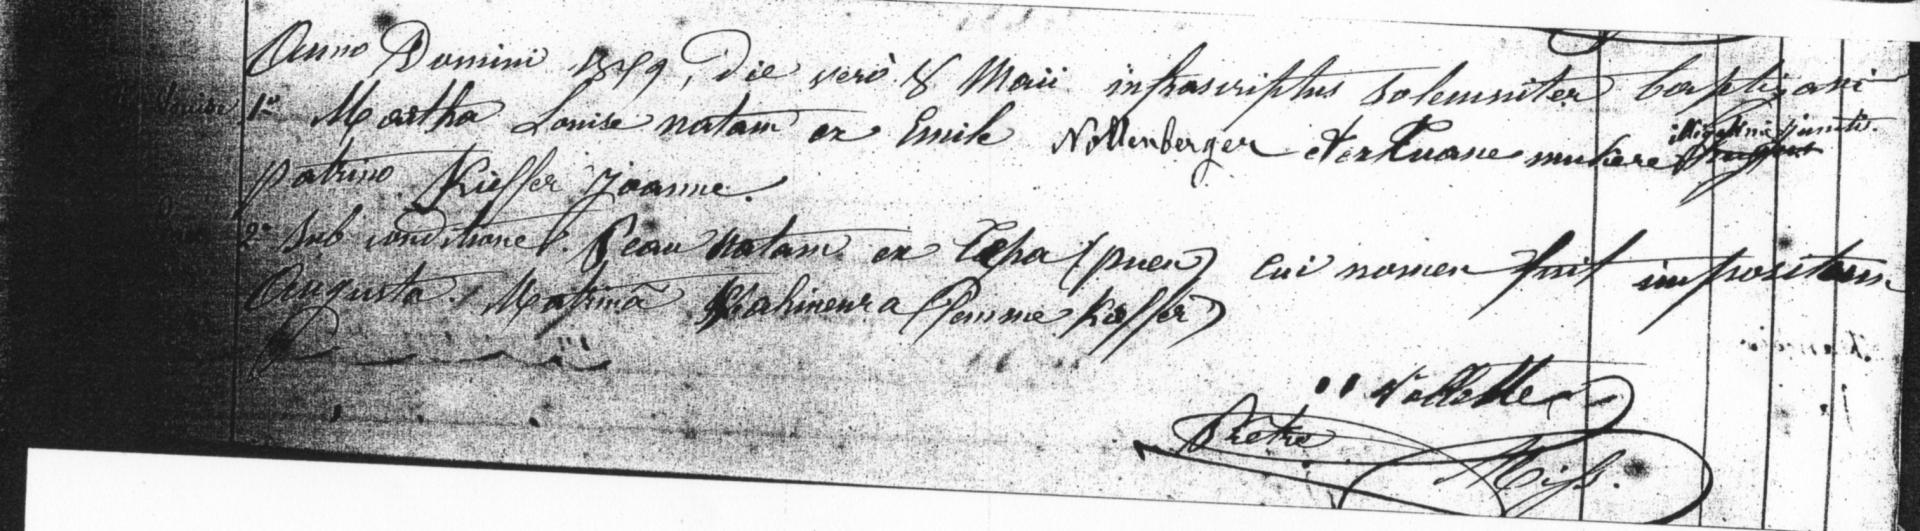 Louise
Anno Domini 1879, die vero 8 Maii infrascriptus solemniter baptizavi
1° Martha Louise natam ex Emile Nollenberger et ex muliere illegitime juncti.
patrino Kieffer Joanne.
2° Sub conditione natam ex Tepa (puen) cui nomen fuit impositum
Augusta. Matrinâ (femme Kieffer)
Vallette
Prêtre
Miss.